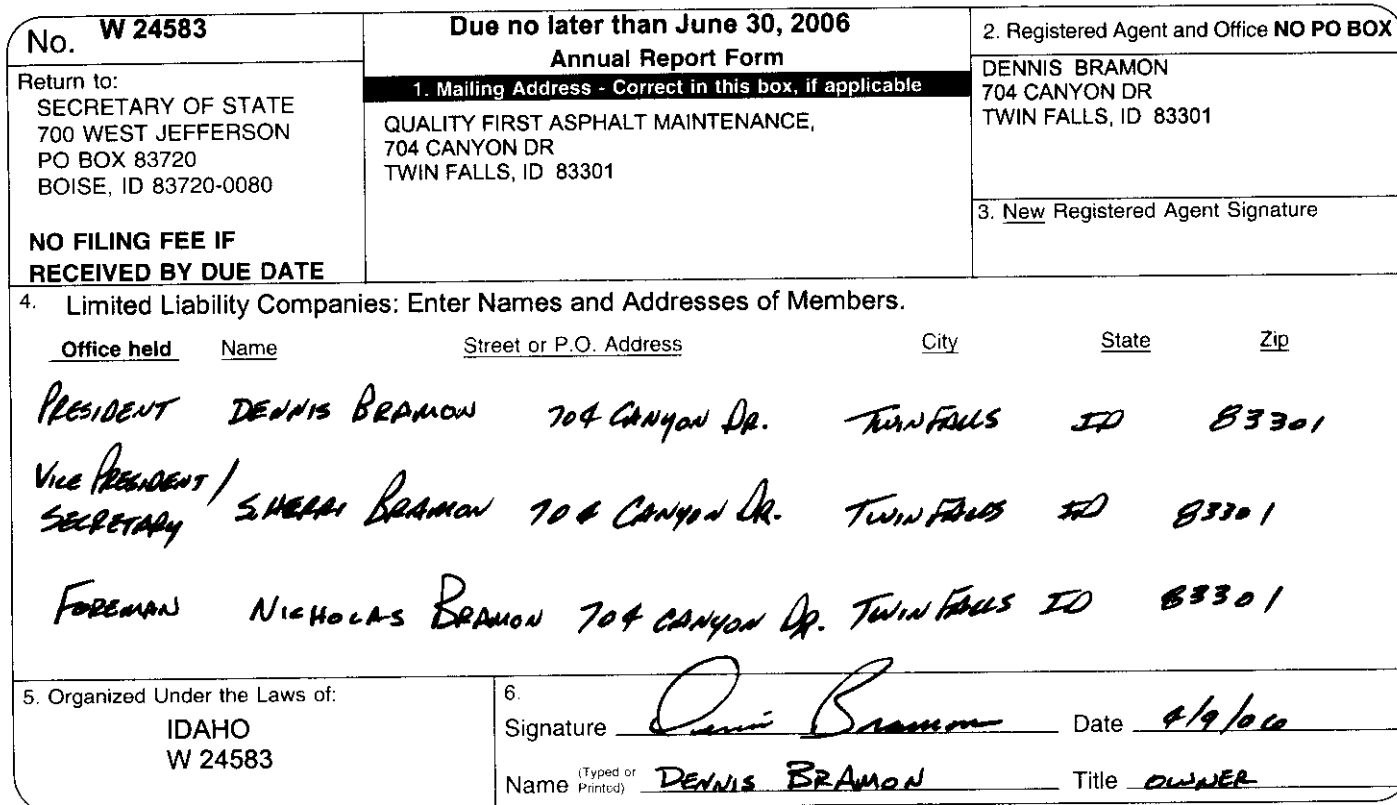 No. W 24583
Return to:
SECRETARY OF STATE
700 WEST JEFFERSON
PO BOX 83720
BOISE, ID 83720-0080
NO FILING FEE IF
RECEIVED BY DUE DATE
Due no later than June 30, 2006
Annual Report Form
1. Mailing Address - Correct in this box, if applicable
QUALITY FIRST ASPHALT MAINTENANCE,
704 CANYON DR
TWIN FALLS, ID 83301
2. Registered Agent and Office NO PO BOX
DENNIS BRAMON
704 CANYON DR
TWIN FALLS, ID 83301
3. New Registered Agent Signature
4. Limited Liability Companies: Enter Names and Addresses of Members.
Office held Name Street or P.O. Address City State Zip
PRESIDENT DENNIS BRAMON 704 CANYON DR. TWIN FALLS ID 83301
VICE PRESIDENT /
SECRETARY SHERRI BRAMON 704 CANYON DR. TWIN FALLS ID 83301
FOREMAN NICHOLAS BRAMON 704 CANYON DR. TWIN FALLS ID 83301
5. Organized Under the Laws of:
IDAHO
W 24583
6.
Signature Dennis Bramon Date 4/9/06
Name (Typed or Printed) DENNIS BRAMON Title OWNER